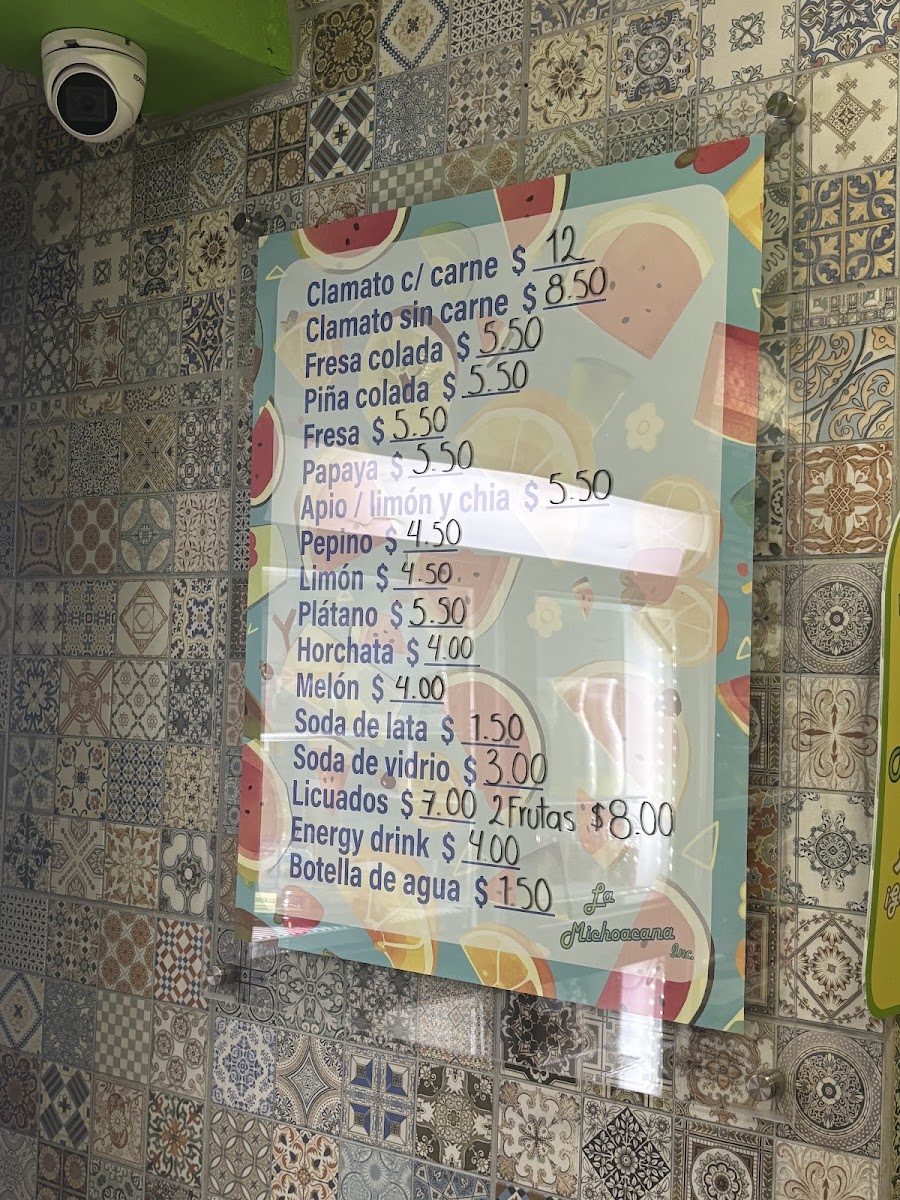 Clamato c/ carne $ 12
Clamato sin carne $ 8.50
Fresa colada $ 5.50
Piña colada $ 5.50
Fresa $ 5.50
Papaya $ 5.50
Apio / limón y chia $ 5.50
Pepino $ 4.50
Limón $ 4.50
Plátano $ 5.50
Horchata $ 4.00
Melón $ 4.00
Soda de lata $ 1.50
Soda de vidrio $ 3.00
Licuados $ 7.00 2 Frutas $8.00
Energy drink $ 4.00
Botella de agua $ 1.50
La
Michoacana
Inc.